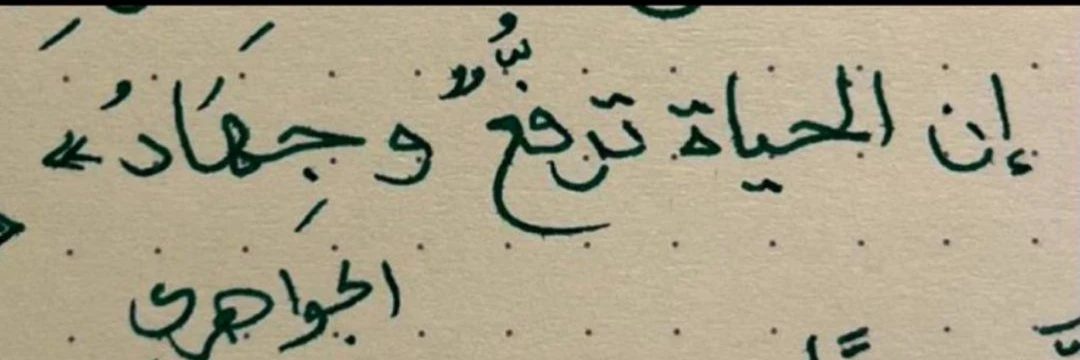 إن الحياة ترفعٌ وجِهَادُ»
الجواهري